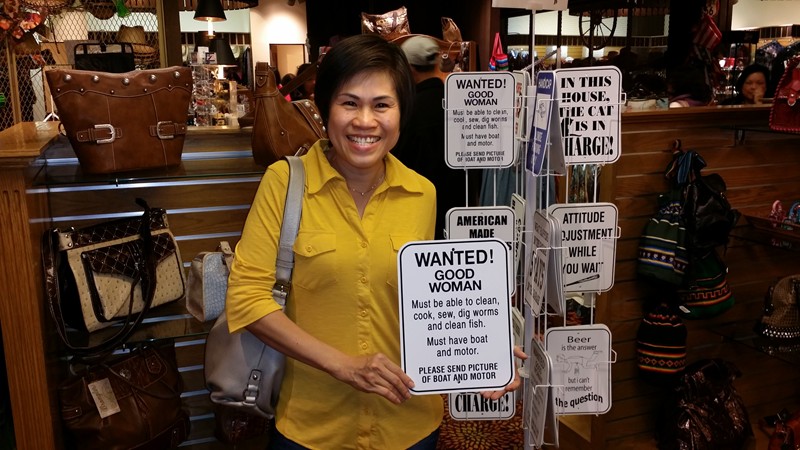 WANTED!
GOOD
WOMAN
Must be able to clean,
cook, sew, dig worms
and clean fish.
Must have boat
and motor.
PLEASE SEND PICTURE
OF BOAT AND MOTOR
WANTED!
GOOD
WOMAN
Must be able to clean,
cook, sew, dig worms
and clean fish.
Must have boat
and motor.
PLEASE SEND PICTURE
OF BOAT AND MOTOR
IN THIS
HOUSE,
THE CAT
IS IN
CHARGE!
AMERICAN
MADE
ATTITUDE
ADJUSTMENT
WHILE
YOU WAIT
Beer
is the Answer
but i can't
remember
the question
CHARGE!